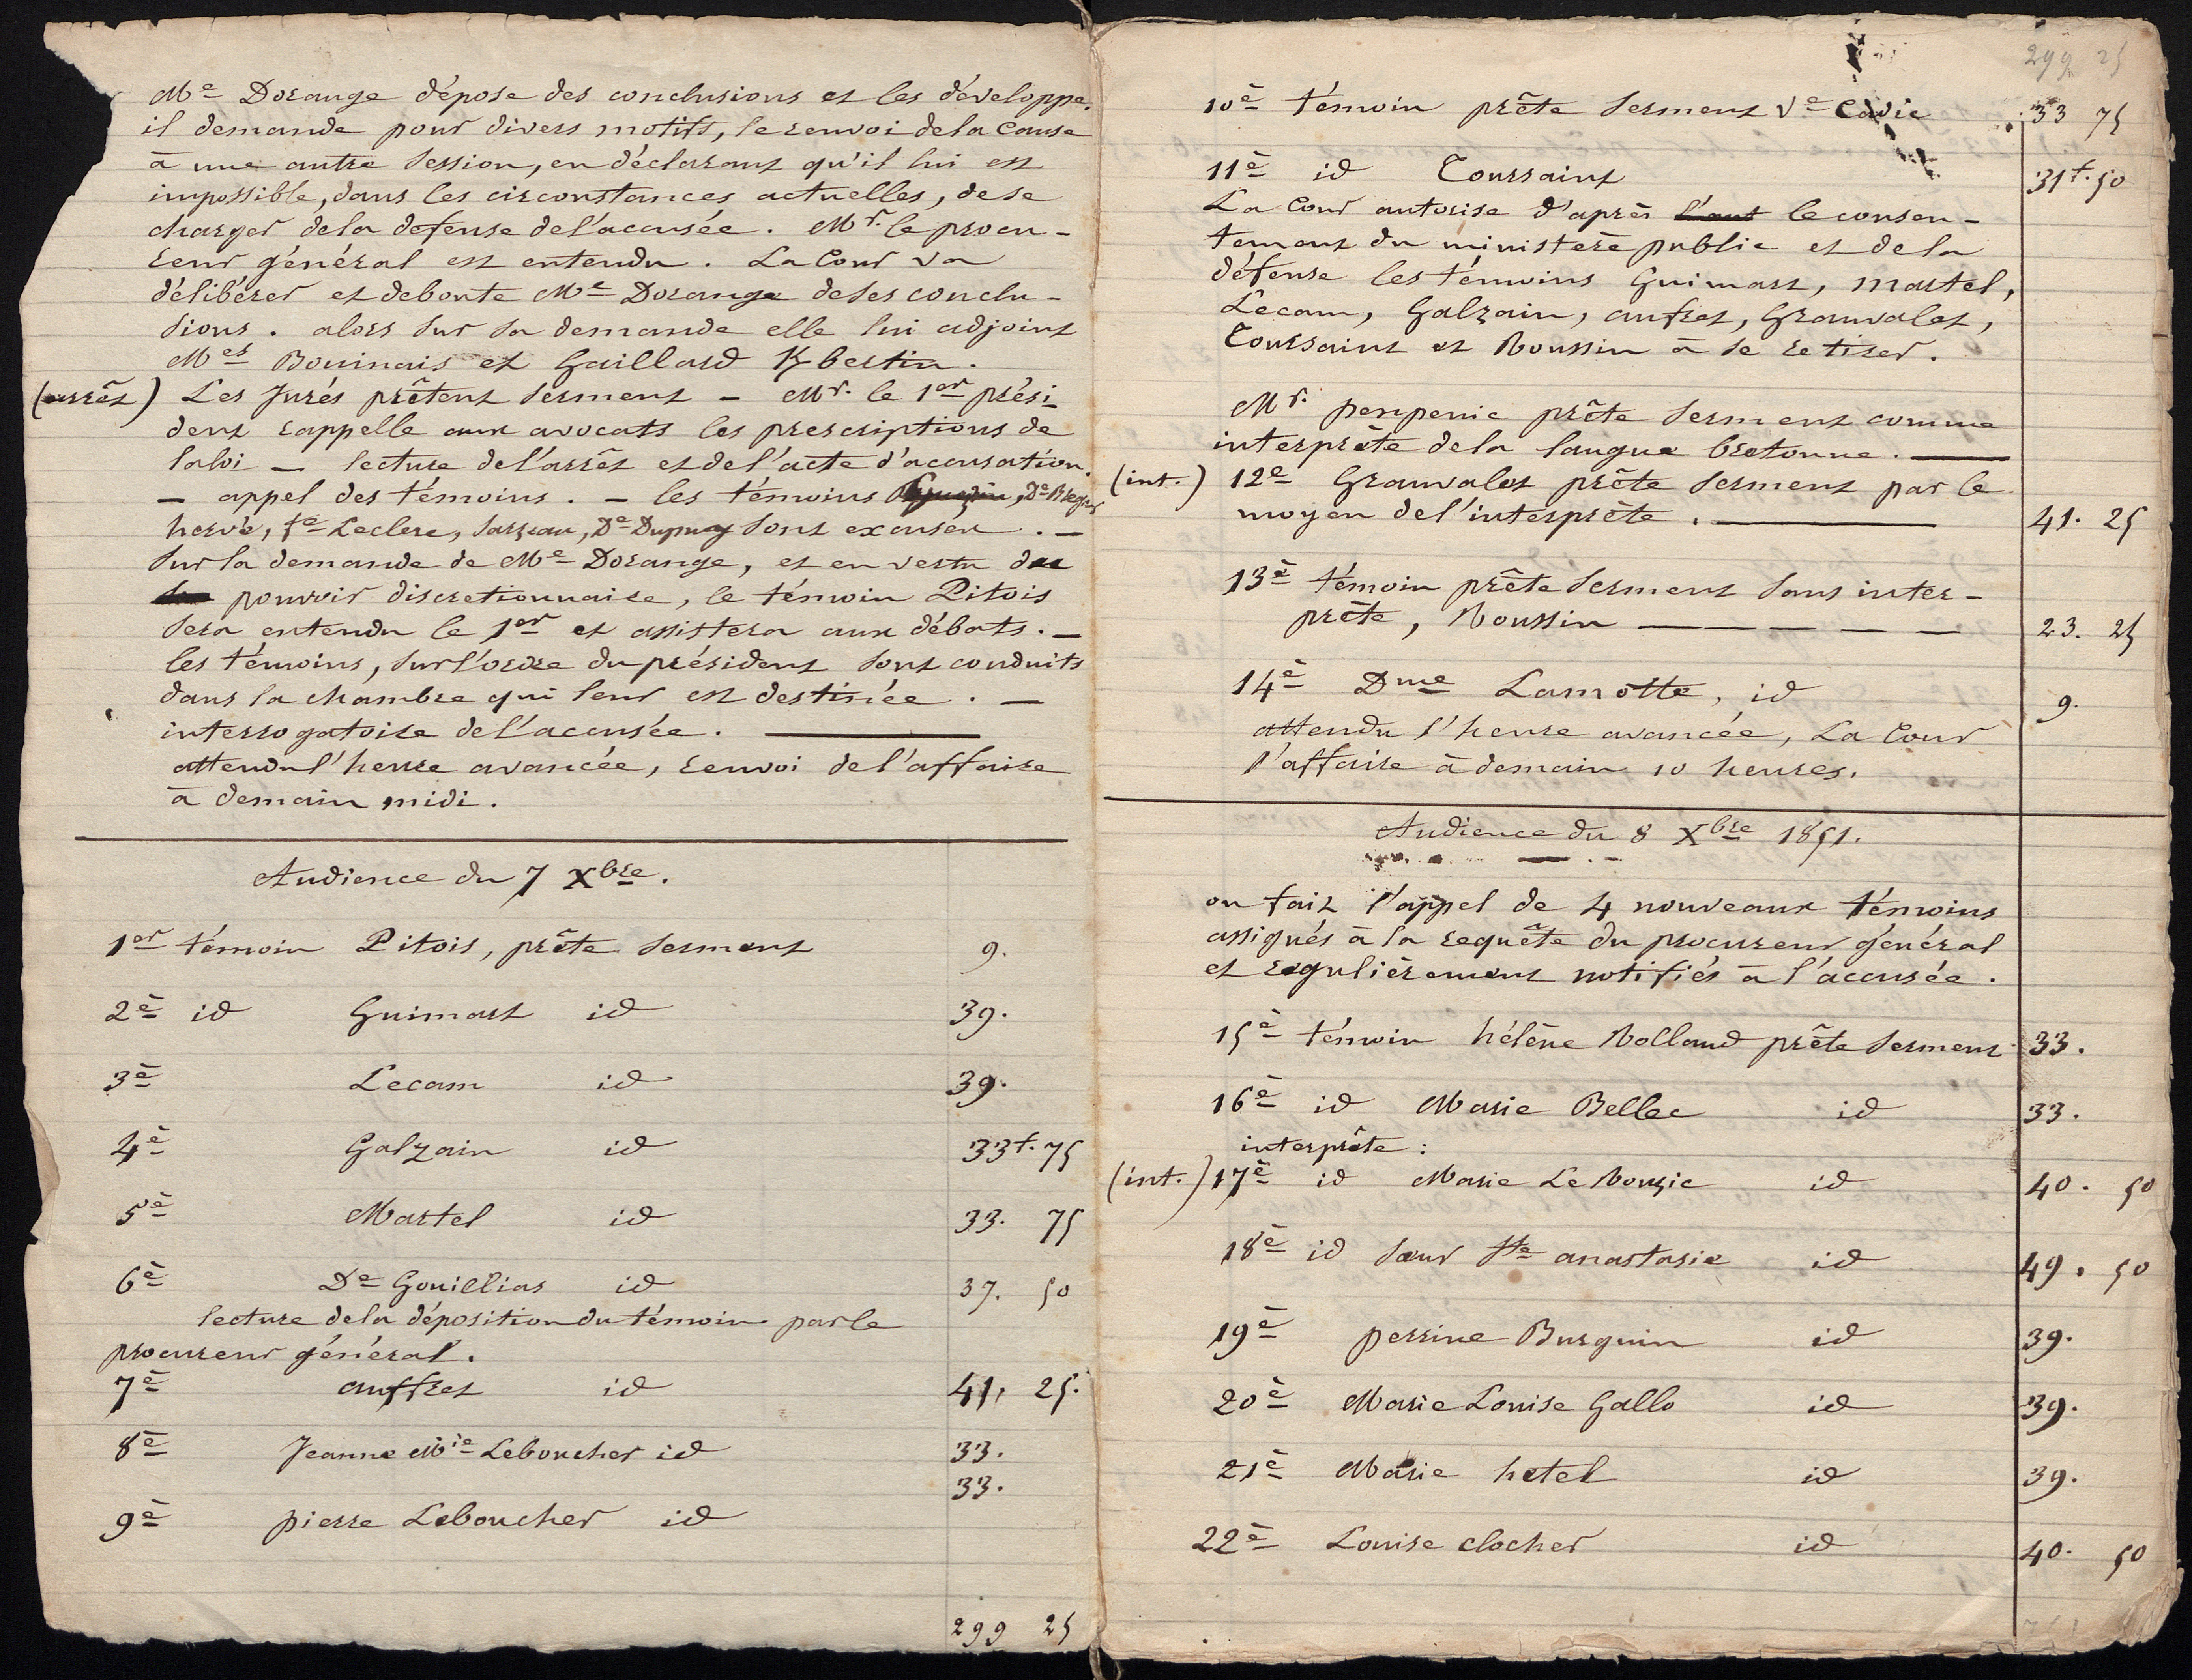 Me Dorange dépose des conclusions et les développe.
il demande pour divers motifs, le renvoi de la Cause
à une autre Session, en déclarant qu'il lui est
impossible, dans les circonstances actuelles, de se
charger de la defense de l'accusée. Mr. le procu-
reur général est entendu. La Cour va
délibérer et deboute Me Dorange de ses conclu-
sions. alors sur sa demande elle lui adjoint
Mes Bouinais et Gaillard Kbertin.
(arrêt) Les Jurés prêtent serment - Mr. le 1er prési-
dent rappelle aux avocats les prescriptions de
la loi - lecture de l'arrêt et de l'acte d'accusation.
- appel des témoins. - les témoins De Bregés
hervé, fe Leclerc, Sarzeau, De Dupuy sont excuser. -
Sur la demande de Me Dorange, et en vertu du
pouvoir discretionnaire, le témoin Pitois
sera entendu le 1er et assistera aux débats. -
les témoins, sur l'ordre du président sont conduits
dans la chambre qui leur est destinée. -
interrogatoire de l'accusée.
attendu l'heure avancée, renvoi de l'affaire
à demain midi.
Audience du 7 Xbre.
1er témoin Pitois, prête serment 9.
2è id Guimart id 39.
3è Lecam id 39.
4è Galzain id 33f. 75
5è Martel id 33. 75
6è De Gouillias id 37. 50
lecture de la déposition du témoin par le
procureur général.
7è auffret id 41. 25.
8è Jeanne Mie Leboucher id 33.
33.
9è pierre Leboucher id
299 25
299 25
10è témoin prête serment Ve Cadic 33 75
11è id Toursaint 31f. 50
La Cour autorise d'après l'aut le consen-
tement du ministère public et de la
défense les témoins Guimart, martel,
Lecam, Galzain, aufret, Granvalet,
Toursaint et Roussin à se retirer.
Mr. penpenic prête serment comme
interprète de la langue bretonne.
(int.) 12e Granvalet prête serment par le
moyen de l'interprète. 41. 25
13è témoin prête serment sans inter-
prête, Roussin 23. 25
14è Dme Lamotte, id 9.
attendu l'heure avancée, La Cour
l'affaire à demain 10 heures.
Audience du 8 Xbre 1851.
on fait l'appel de 4 nouveaux témoins
assignés à la requête du procureur général
et regulièrement notifiés à l'accusée.
15è témoin hélène Rolland prête serment 33.
16è id Marie Bellec id 33.
interprète :
(int.) 17è id Marie Le Rouzic id 40. 50
18è id Sœur Ste anastasie id 49. 50
19è perrine Burguin id 39.
20è Marie Louise Gallo id 39.
21è Marie hetel id 39.
22è Louise clocher id 40. 50